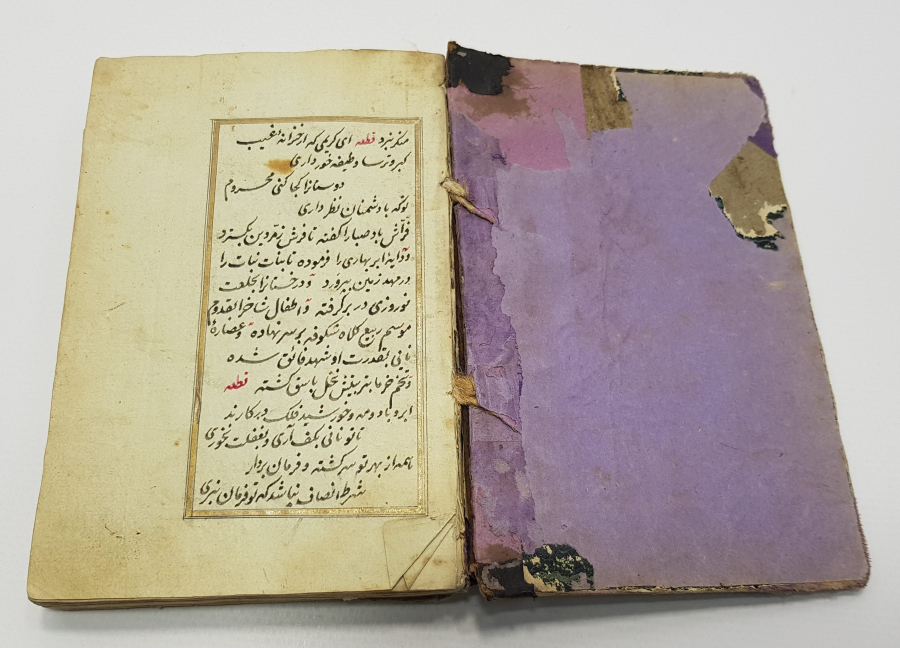 منکر نبرد قطعه ای کریمی که از خزانه غیب
کبر و ترسا وظیفه خور داری
دوستانرا کجا کنی محروم
توکه با دشمنان نظر داری
فراش باد صبا را گفته تا فرش زمردین بگسترد
و دایهٔ ابر بهاری را فرموده تا بنات نبات را
در مهد زمین بپرورد و درختانرا بخلعت
نوروزی در بر گرفته و اطفال شاخ را بقدوم
موسم ربیع کلاه شکوفه بر سر نهاده و عصارهٔ
نایی بقدرت او شهد فائق شده
و تخم خرما بتربیتش نخل باسق کشته قطعه
ابر و باد و مه و خورشید فلک در کارند
تا تو نانی بکف آری و بغفلت نخوری
همه از بهر تو سرکشته و فرمان بردار
شرط انصاف نباشد که تو فرمان نبری